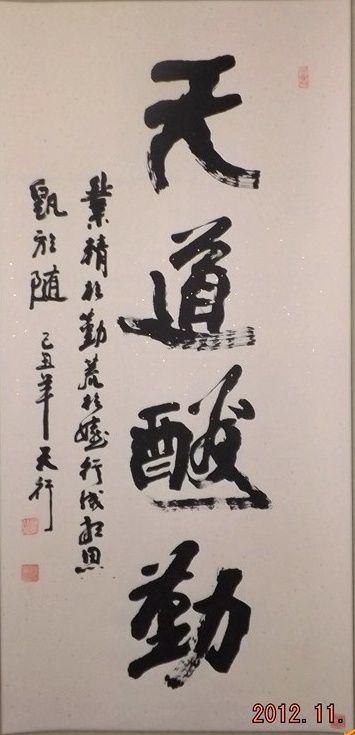 天道酬勤
業精於勤荒於嬉行成於思
毀於随 己丑年 天行
2012.11.